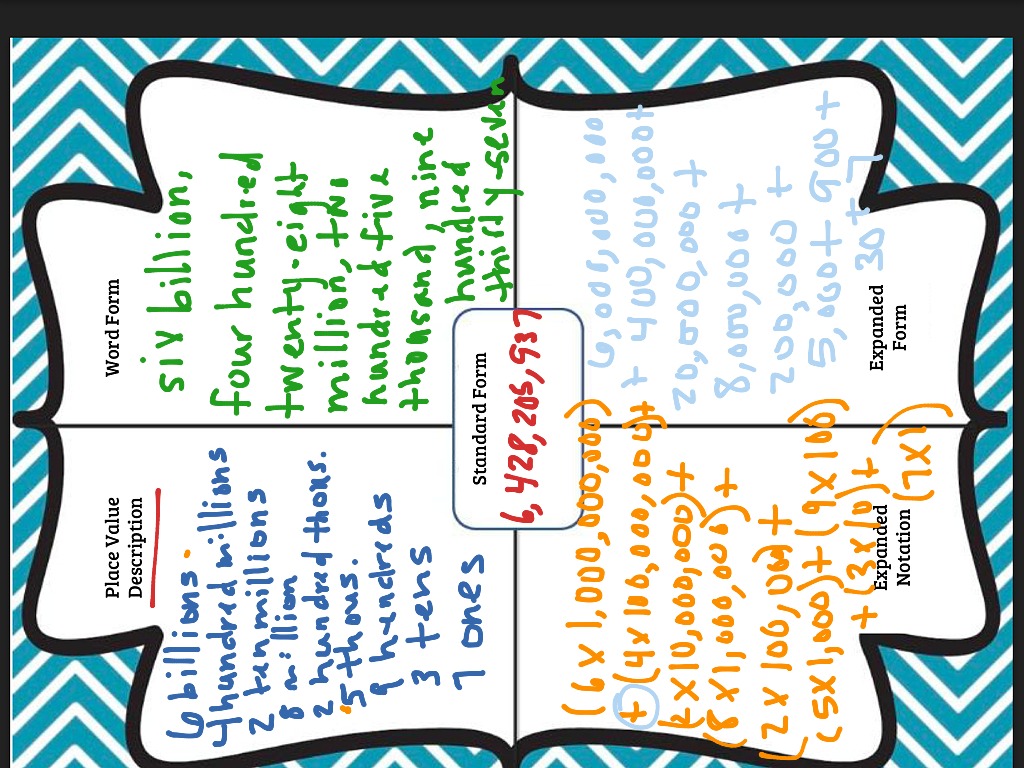 Place Value
Description
6 billions.
4 hundred millions
2 ten millions
8 million
2 hundred thous.
5 thous.
9 hundreds
3 tens
7 ones
Word Form
six billion,
four hundred
twenty-eight
million, two
hundred five
thousand, nine
hundred
thirty-seven
Standard Form
6,428,205,937
(6 x 1,000,000,000)
+ (4 x 100,000,000)+
(2 x 10,000,000)+
(8 x 1,000,000)+
(2 x 100,000)+
(5 x 1,000)+(9 x 100)
+ (3 x 10)+
(7 x 1)
Expanded
Notation
6,000,000,000
+ 400,000,000+
20,000,000 +
8,000,000 +
200,000 +
5,000 + 900 +
30 + 7
Expanded
Form